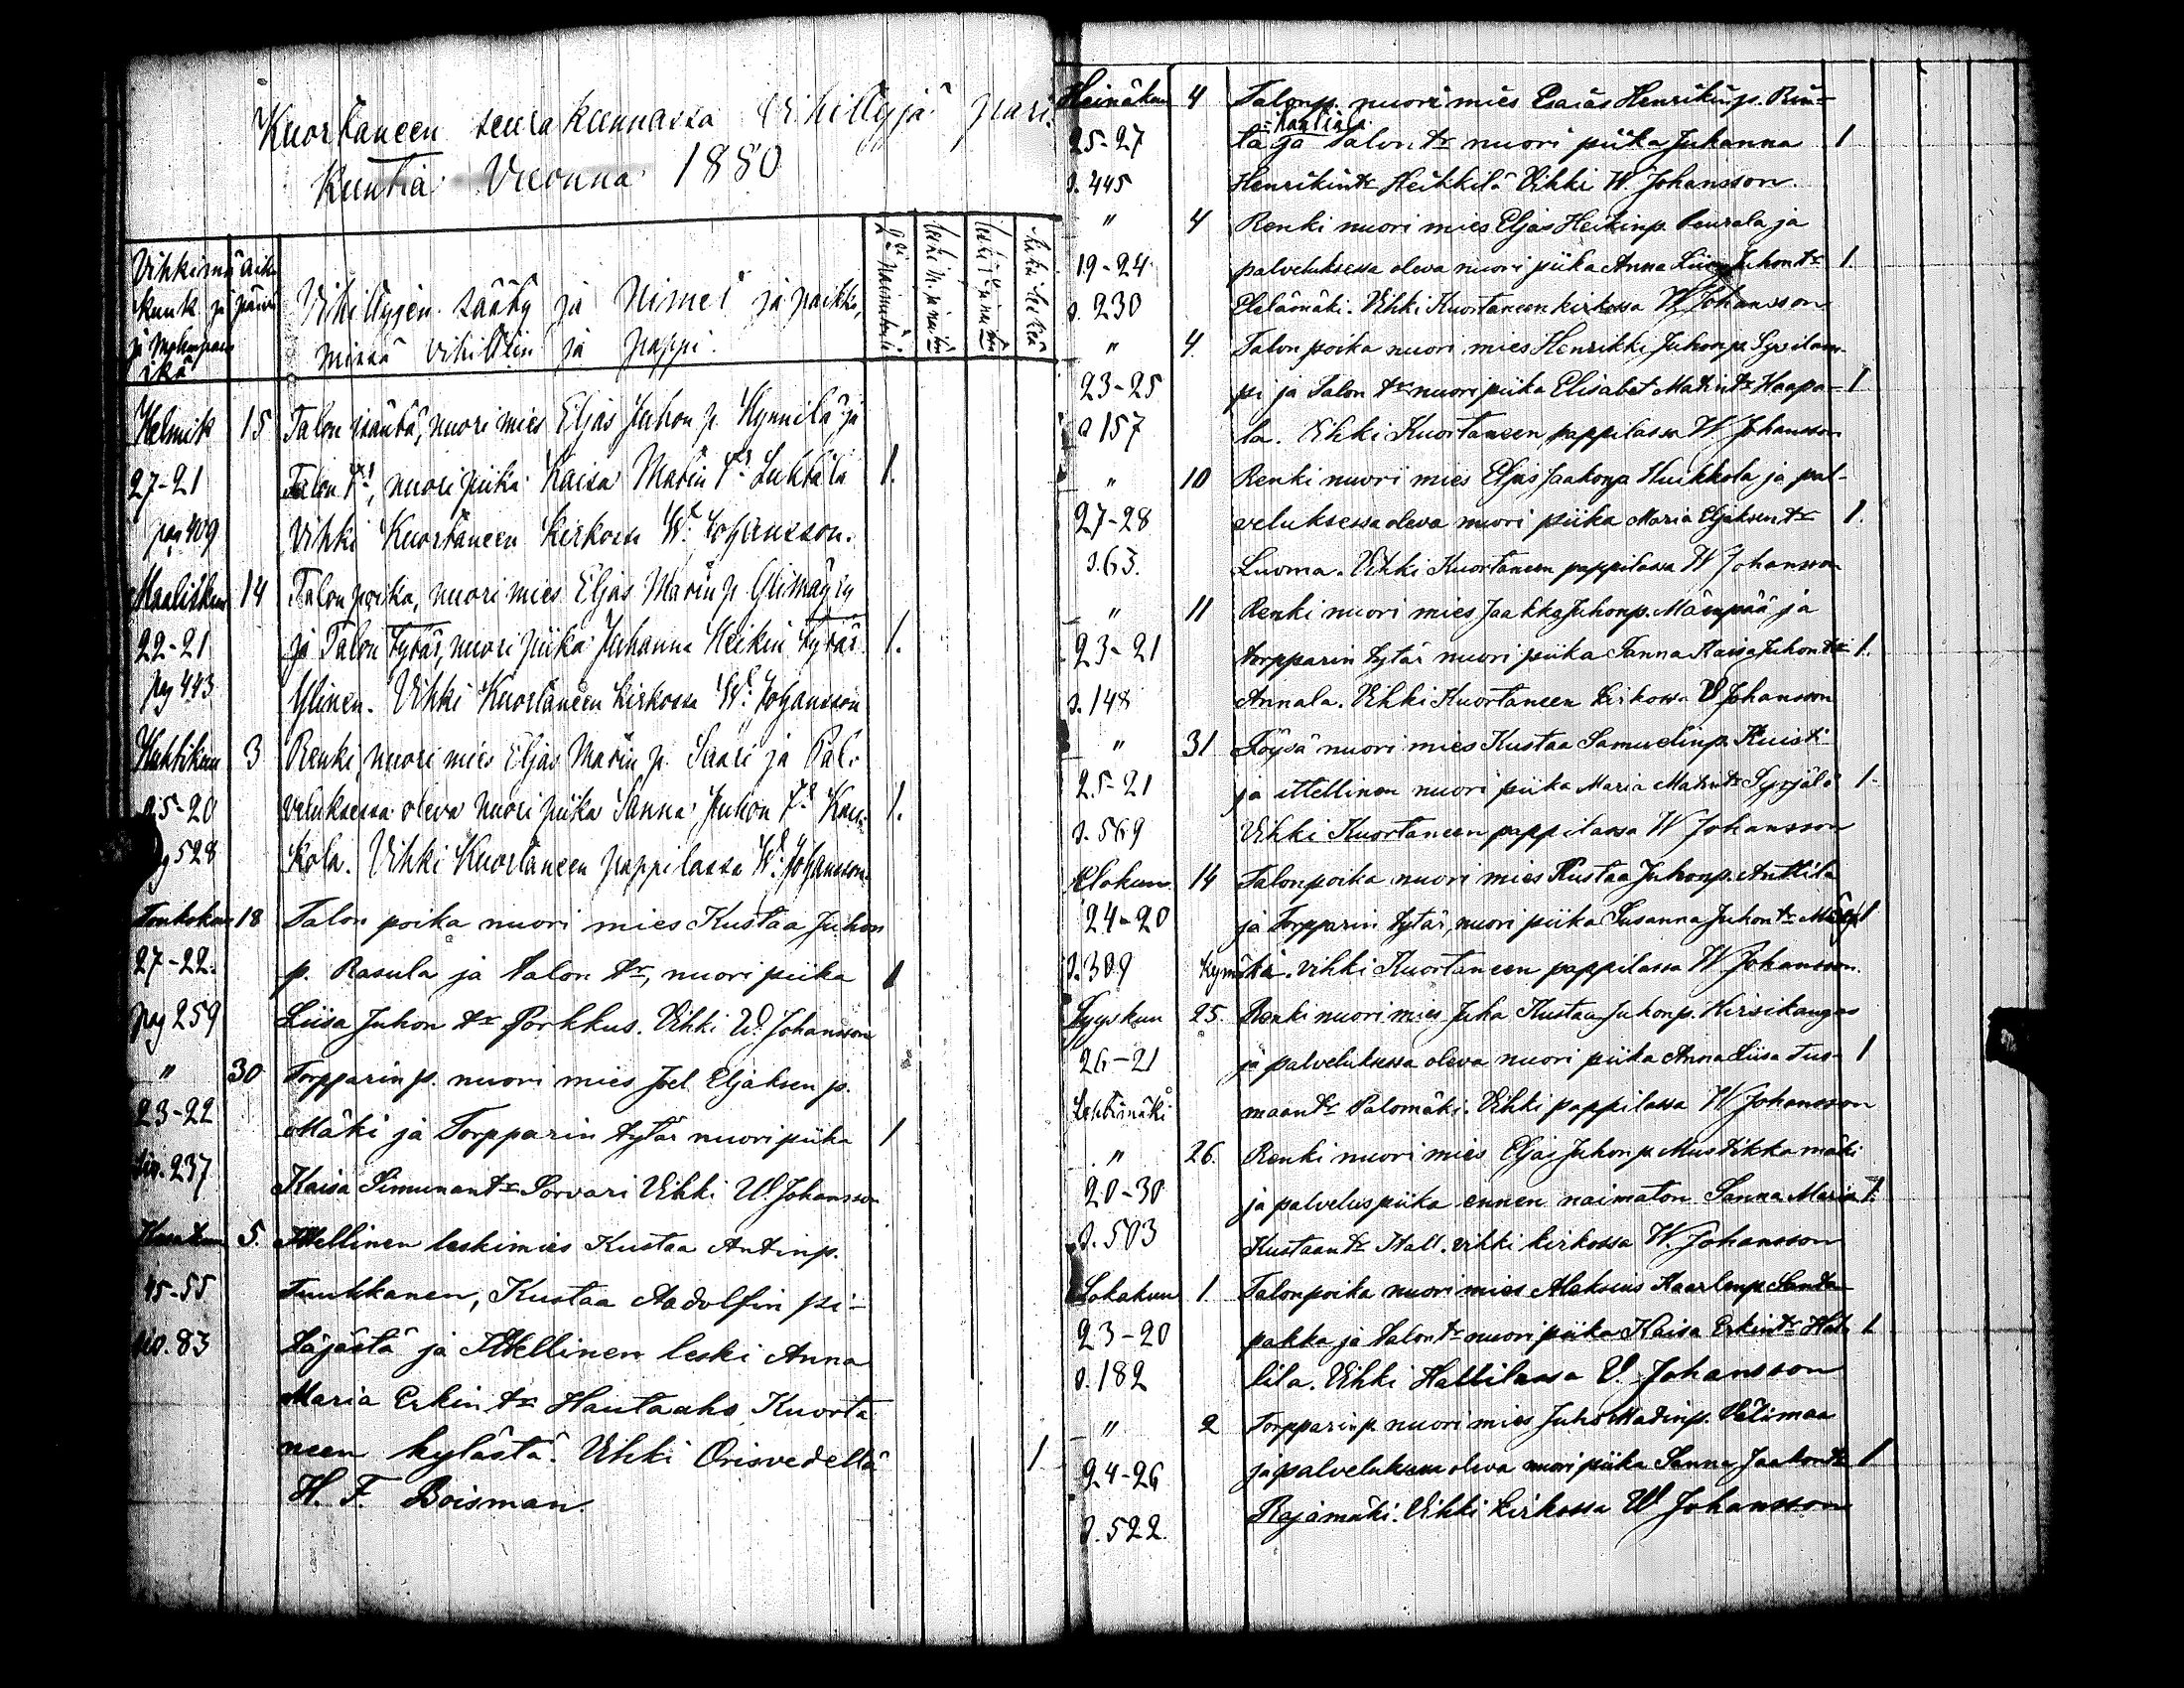 Kuortaneen seurakunnassa Vihittyjä pari
Kuntia Vuonna 1880
Vihkimä aika
kuuk. ja päivä
ja molempain
ikä
Vihittyjen sääty ja Nimet ja paikka,
missä vihittiin ja pappi.
Helmik 15 Talon isäntä, nuori mies Eljas Juhon p. Kynnilä ja
27-21 Talon Tr, nuori piika Kaisa Matin Tr Luhtala 1.
pag 409 Vihki Kuortaneen Kirkossa W. Johansson.
Maaliskuu 14 Talon poika, nuori mies Eljas Matin p. Ylimäyry
22-21 ja Talon tytär, nuori piika Juhanna Heikin tytär 1.
pag 443 Ylinen. Vihki Kuortaneen Kirkossa W. Johansson
Huhtikuu 3 Renki, nuori mies Eljas Matin p. Saari ja Pal-
25-20 veluksessa oleva nuori piika Sanna Juhon Tr Kau- 1.
pag 528 kola. Vihki Kuortaneen pappilassa W. Johansson.
Toukokuu 18 Talon poika nuori mies Kustaa Juhon
27-22. p. Rasula ja talon tr, nuori piika 1
pag 259 Liisa Juhon tr Porkkus. Vihki W. Johansson
" 30 Torpparin p. nuori mies Joel Eljaksen p.
23-22 Mäki ja Torpparin tytär nuori piika 1
siv. 237 Kaisa Simunan tr Porvari Vihki W. Johansson
Kesäkuu 5. Ittellinen leskimies Kustaa Antinp.
45-55 Tuukkanen, Kustaa Aadolfin pi-
sio. 83 täjästä ja Ittellinen leski Anna
Maria Erkin tr Hautaaho Kuorta
neen kylästä. Vihki Orisvedellä 1
H. F. Boisman.
Heinäkuu 4 Talonp. nuori mies Esaias Henrikinp. Rin=
=kaliala
25-27 tä ja talon tr nuori piika Juhanna 1
s. 445 Henrikin tr Heikkilä Vihki W. Johansson.
" 4 Renki nuori mies Eljas Heikinp. Peurala ja
19-24 palveluksessa oleva nuori piika Anna Liisa Juhon tr 1.
s. 230 Elelämäki. Vihki Kuortaneen kirkossa W. Johansson
" 4. Talon poika nuori mies Henrikki Juhonp. Sysilam-
23-25 pi ja Talon tr nuori piika Elisabet Matin tr Haapa- 1
s 157 la. Vihki Kuortaneen pappilassa W. Johansson
" 10 Renki nuori mies Eljas Jaakonp Huikkola ja pal-
27-28 veluksessa oleva nuori piika Maria Eljaksen tr 1.
s. 63. Luoma. Vihki Kuortaneen pappilassa W Johansson
" 11 Renki nuori mies Jaakka Juhonp. Mäenpää ja
23-21 torpparin tytär nuori piika Sanna Kaisa Juhon tr 1.
s. 148 Annala. Vihki Kuortaneen kirkossa W Johansson
" 31 Töysä nuori mies Kustaa Samuelinp. Kuisti
25-21 ja ittellinen nuori piika Maria Matin tr Syrjälä 1.
s. 569 Vihki Kuortaneen pappilassa W Johansson
Elokuu 14 Talonpoika nuori mies Kustaa Juhonp. Anttila
24-20 ja Torpparin tytär, nuori piika Susanna Juhon tr 1
s. 309 kymäki. vihki Kuortaneen pappilassa W Johansson.
Syyskuu 25. Renki nuori mies Juha Kustaa Juhonp. Kirsikangas
26-21 ja palveluksessa oleva nuori piika Anna Liisa Tuo- 1
Lehtimäki maan tr Palomäki. Vihki pappilassa W Johansson
" 26. Renki nuori mies Eljas Juhon p. Mustikka mäki
20-30 ja palveluspiika ennen naimaton Sanna Maria 1.
s. 503 Kustaan tr Hall. vihki kirkossa W. Johansson
Lokakuu 1. Talonpoika nuori mies Aleksius Kaarlenp. Santa
23-20 pakka ja talon tr nuori piika Kaisa Erkin tr Hal- 1
s. 182 lila. Vihki Hallilassa W Johansson
" 2 Torpparinp. nuori mies Juho Matinp. Välimaa
24-26 ja palveluksessa oleva nuori piika Sanna Jaakon tr 1
s. 522 Rajamäki. Vihki kirkossa W Johansson